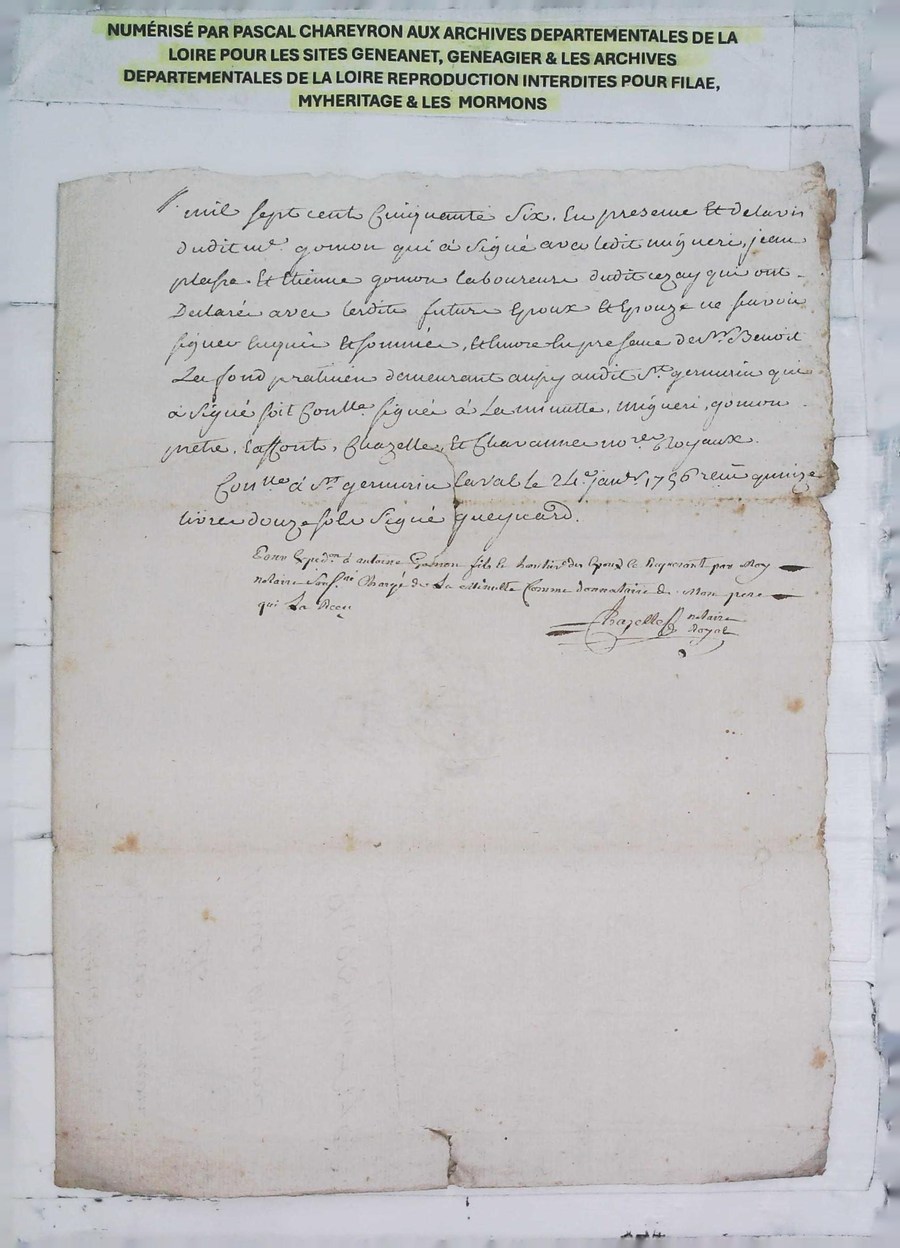 NUMÉRISÉ PAR PASCAL CHAREYRON AUX ARCHIVES DEPARTEMENTALES DE LA
LOIRE POUR LES SITES GENEANET, GENEAGIER & LES ARCHIVES
DEPARTEMENTALES DE LA LOIRE REPRODUCTION INTERDITES POUR FILAE,
MYHERITAGE & LES MORMONS
mil sept cent Cinquante Six. En presence Et delavis
dudit mre gomon qui à Signé avec ledit migneri, jean
Et Etienne gomon laboureurs dudit cezay qui ont
Declarés avec lesdits futurs Epoux Et Epouze ne Savoir
signer Enquis Et sommés, Et Encore En presence de Sr Benoit
Lafond praticien demeurant aussy audit St germain qui
à Signé soit Conlle signée à La minutte, migneri, gomon
prêtre, Laffont, Chazelle, Et Chavanne nores Royaux.
Conlle à St germain Laval le 24e janvr 1756 reçu quinze
livres douze sols Signé gueynard.
Pour Expedon à antoine Gomon fils Et heritier des Epoux Ce Requerant par Moy
notaire Soussigné Chargé de La Minutte Comme donnataire de Mon pere
qui La Reçu
Chazelles notaire
Royal